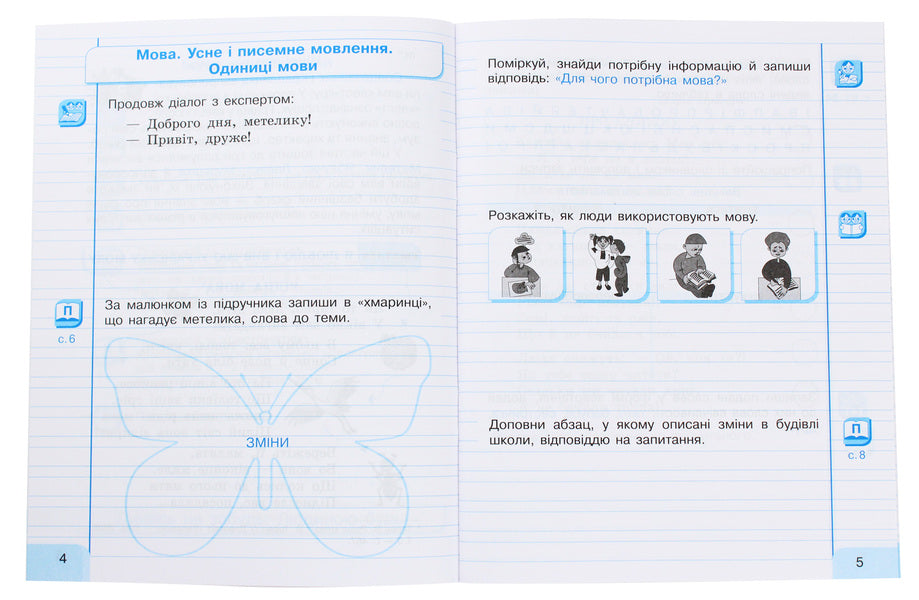 Мова. Усне і писемне мовлення.
Одиниці мови
Продовж діалог з експертом:
— Доброго дня, метелику!
— Привіт, друже!
П
с. 6
За малюнком із підручника запиши в «хмаринці»,
що нагадує метелика, слова до теми.
ЗМІНИ
4
Поміркуй, знайди потрібну інформацію й запиши
відповідь: «Для чого потрібна мова?»
Розкажіть, як люди використовують мову.
Доповни абзац, у якому описані зміни в будівлі
школи, відповіддю на запитання.
П
с. 8
5